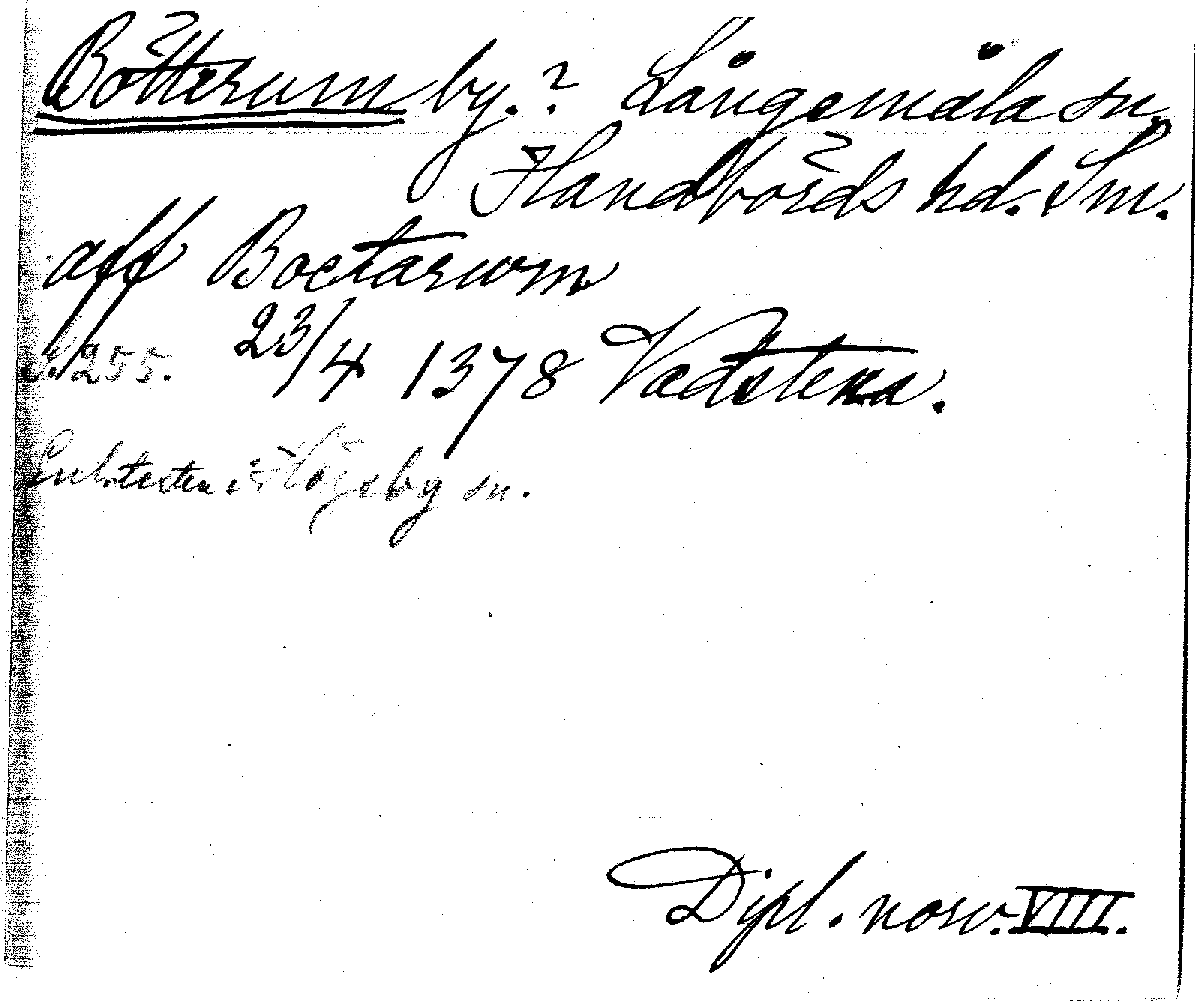 Bötterum by.? Långemåla sn,
Handbörds hd. Sm.
aff Boctarwm
S. 255. 23/4 1378 Vadstena.
Enl. texten i Högsby sn.
Dipl. norv. VIII.